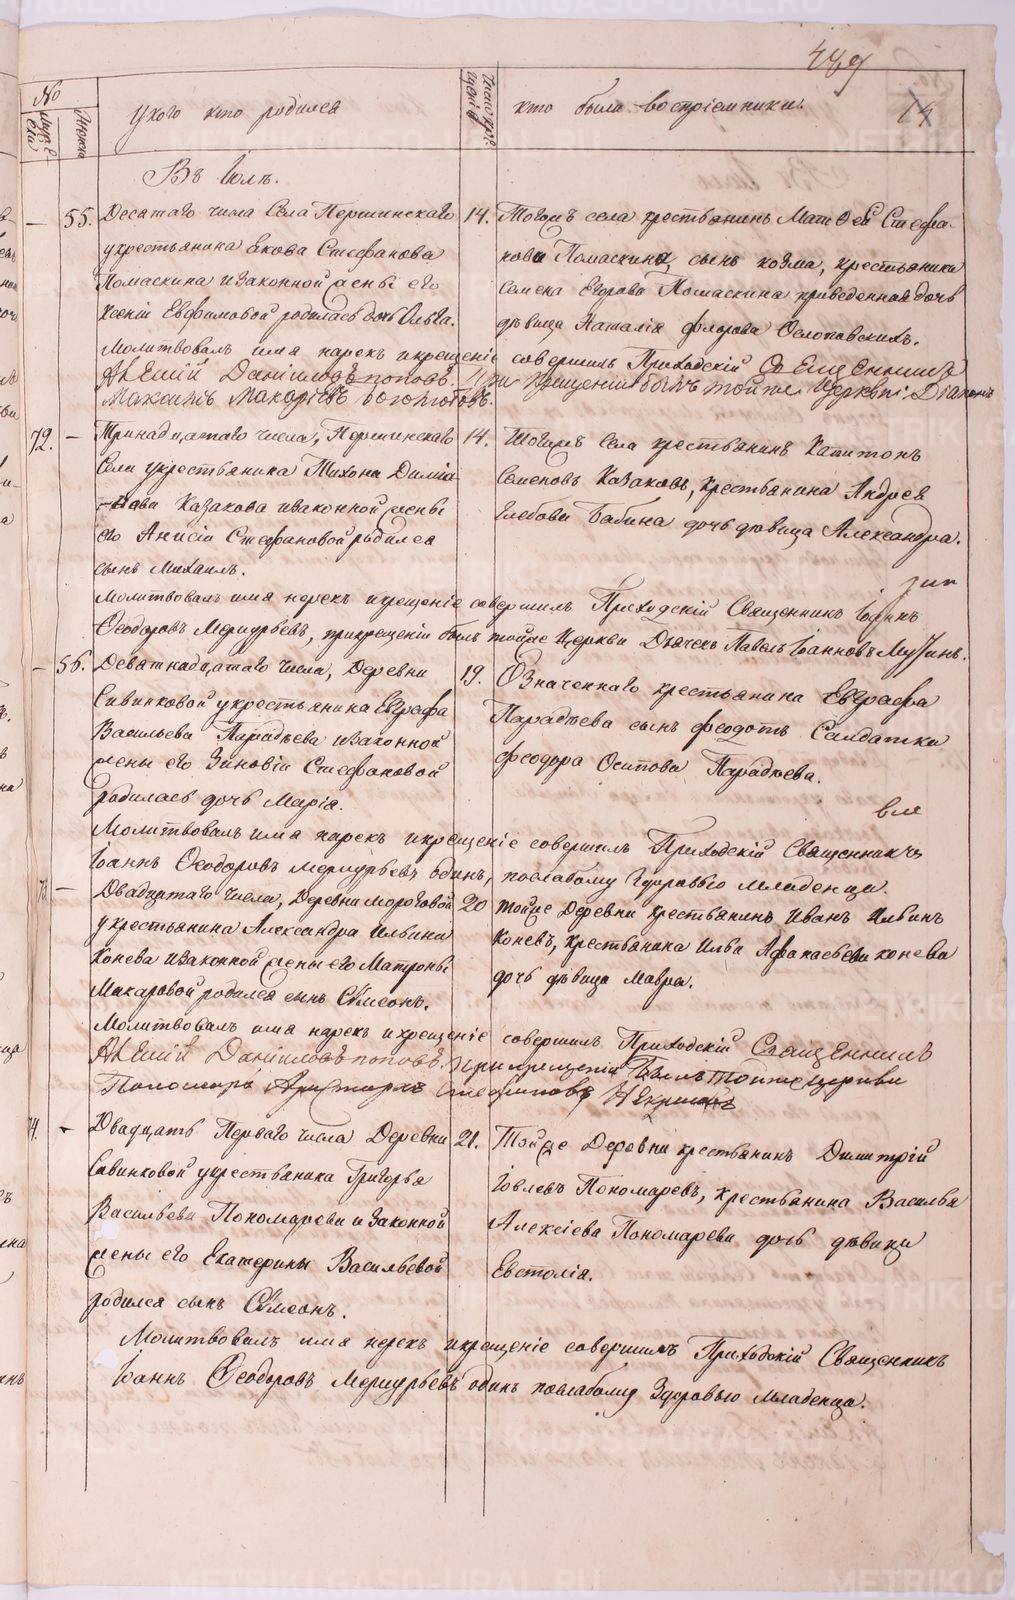 489
14
№
Мужеска
Женска
У кого кто родился
Число крещенія
кто были восприемники.
Въ Iюлѣ.
55. Десятаго числа Села Першинскаго
у крестьянина Якова Стефанова
Помаскина и законной жены его
Ксеніи Евфимовой родилась дочь Ольга.
14. Тогожъ села крестьянинъ Матѳей Стефа-
новъ Помаскинъ, сынъ козма, крестьянина
Семена Егорова Помаскина приведенная дочь
дѣвица Наталія флорова Ослоповскихъ.
Молитвовалъ имя нарекъ и крещеніе совершилъ Приходскій Священникъ
Алексій Даніиловъ поповъ. При крещеніи былъ тойже Церкви Діаконъ
Максимъ Макаріевъ богомоловъ.
72. Тринадцатаго числа, Першинскаго
Села у крестьянина Тихона Димиа-
нова Казакова и законной жены
его Анисіи Стефановой родился
сынъ Михаилъ.
14. Тогожъ Села крестьянинъ Капитонъ
Семеновъ Казаковъ, крестьянина Андрея
Глебова Бабина дочь дѣвица Александра.
Молитвовалъ имя нарекъ и крещеніе совершилъ Приходскій Священникъ Іоаннъ
Ѳеодоровъ Меркурьевъ, при крещеніи былъ тойже Церкви Дьячекъ Павелъ Іоанновъ
56. Девятнадцатаго числа, Деревни
Савинковой у крестьянина Евграфа
Васильева Парадѣева и законной
жены его Зиновіи Стефановой
родилась дочь Марія.
19. Означеннаго крестьянина Евграфа
Парадѣева сынъ феодотъ Салдатка
феодора Осипова Парадѣева.
Молитвовалъ имя нарекъ и крещеніе совершилъ Приходскій Священникъ
Іоаннъ Ѳеодоровъ Меркурьевъ одинъ, по слабому здоровью младенца.
73. Двадцатаго числа, Деревни Мороговой
у крестьянина Александра Ильина
Конева и законной жены его Матроны
Макаровой родился сынъ Сѵмеонъ.
20 тойже Деревни крестьянинъ Иванъ Ильинъ
Коневъ, крестьянина Ильи Афанасьева конева
дочь дѣвица Мавра.
Молитвовалъ имя нарекъ и крещеніе совершилъ Приходскій Священникъ
Алексій Даніиловъ поповъ. при крещеніи былъ тойже церкви
Пономарь Аристархъ
74. Двадцать Перваго числа Деревни
Савинковой у крестьянина Григорья
Васильева Пономарева и законной
жены его Екатерины Васильевой
родился сынъ Сѵмеонъ.
21. Тойже Деревни крестьянинъ Димитрій
Іовлевъ Пономаревъ, крестьянина Василья
Алексіева Пономарева дочь дѣвица
Евстолія.
Молитвовалъ имя нарекъ и крещеніе совершилъ Приходскій Священникъ
Іоаннъ Ѳеодоровъ Меркурьевъ одинъ по слабому Здоровью младенца.
METRIKI.GASO-URAL.RU